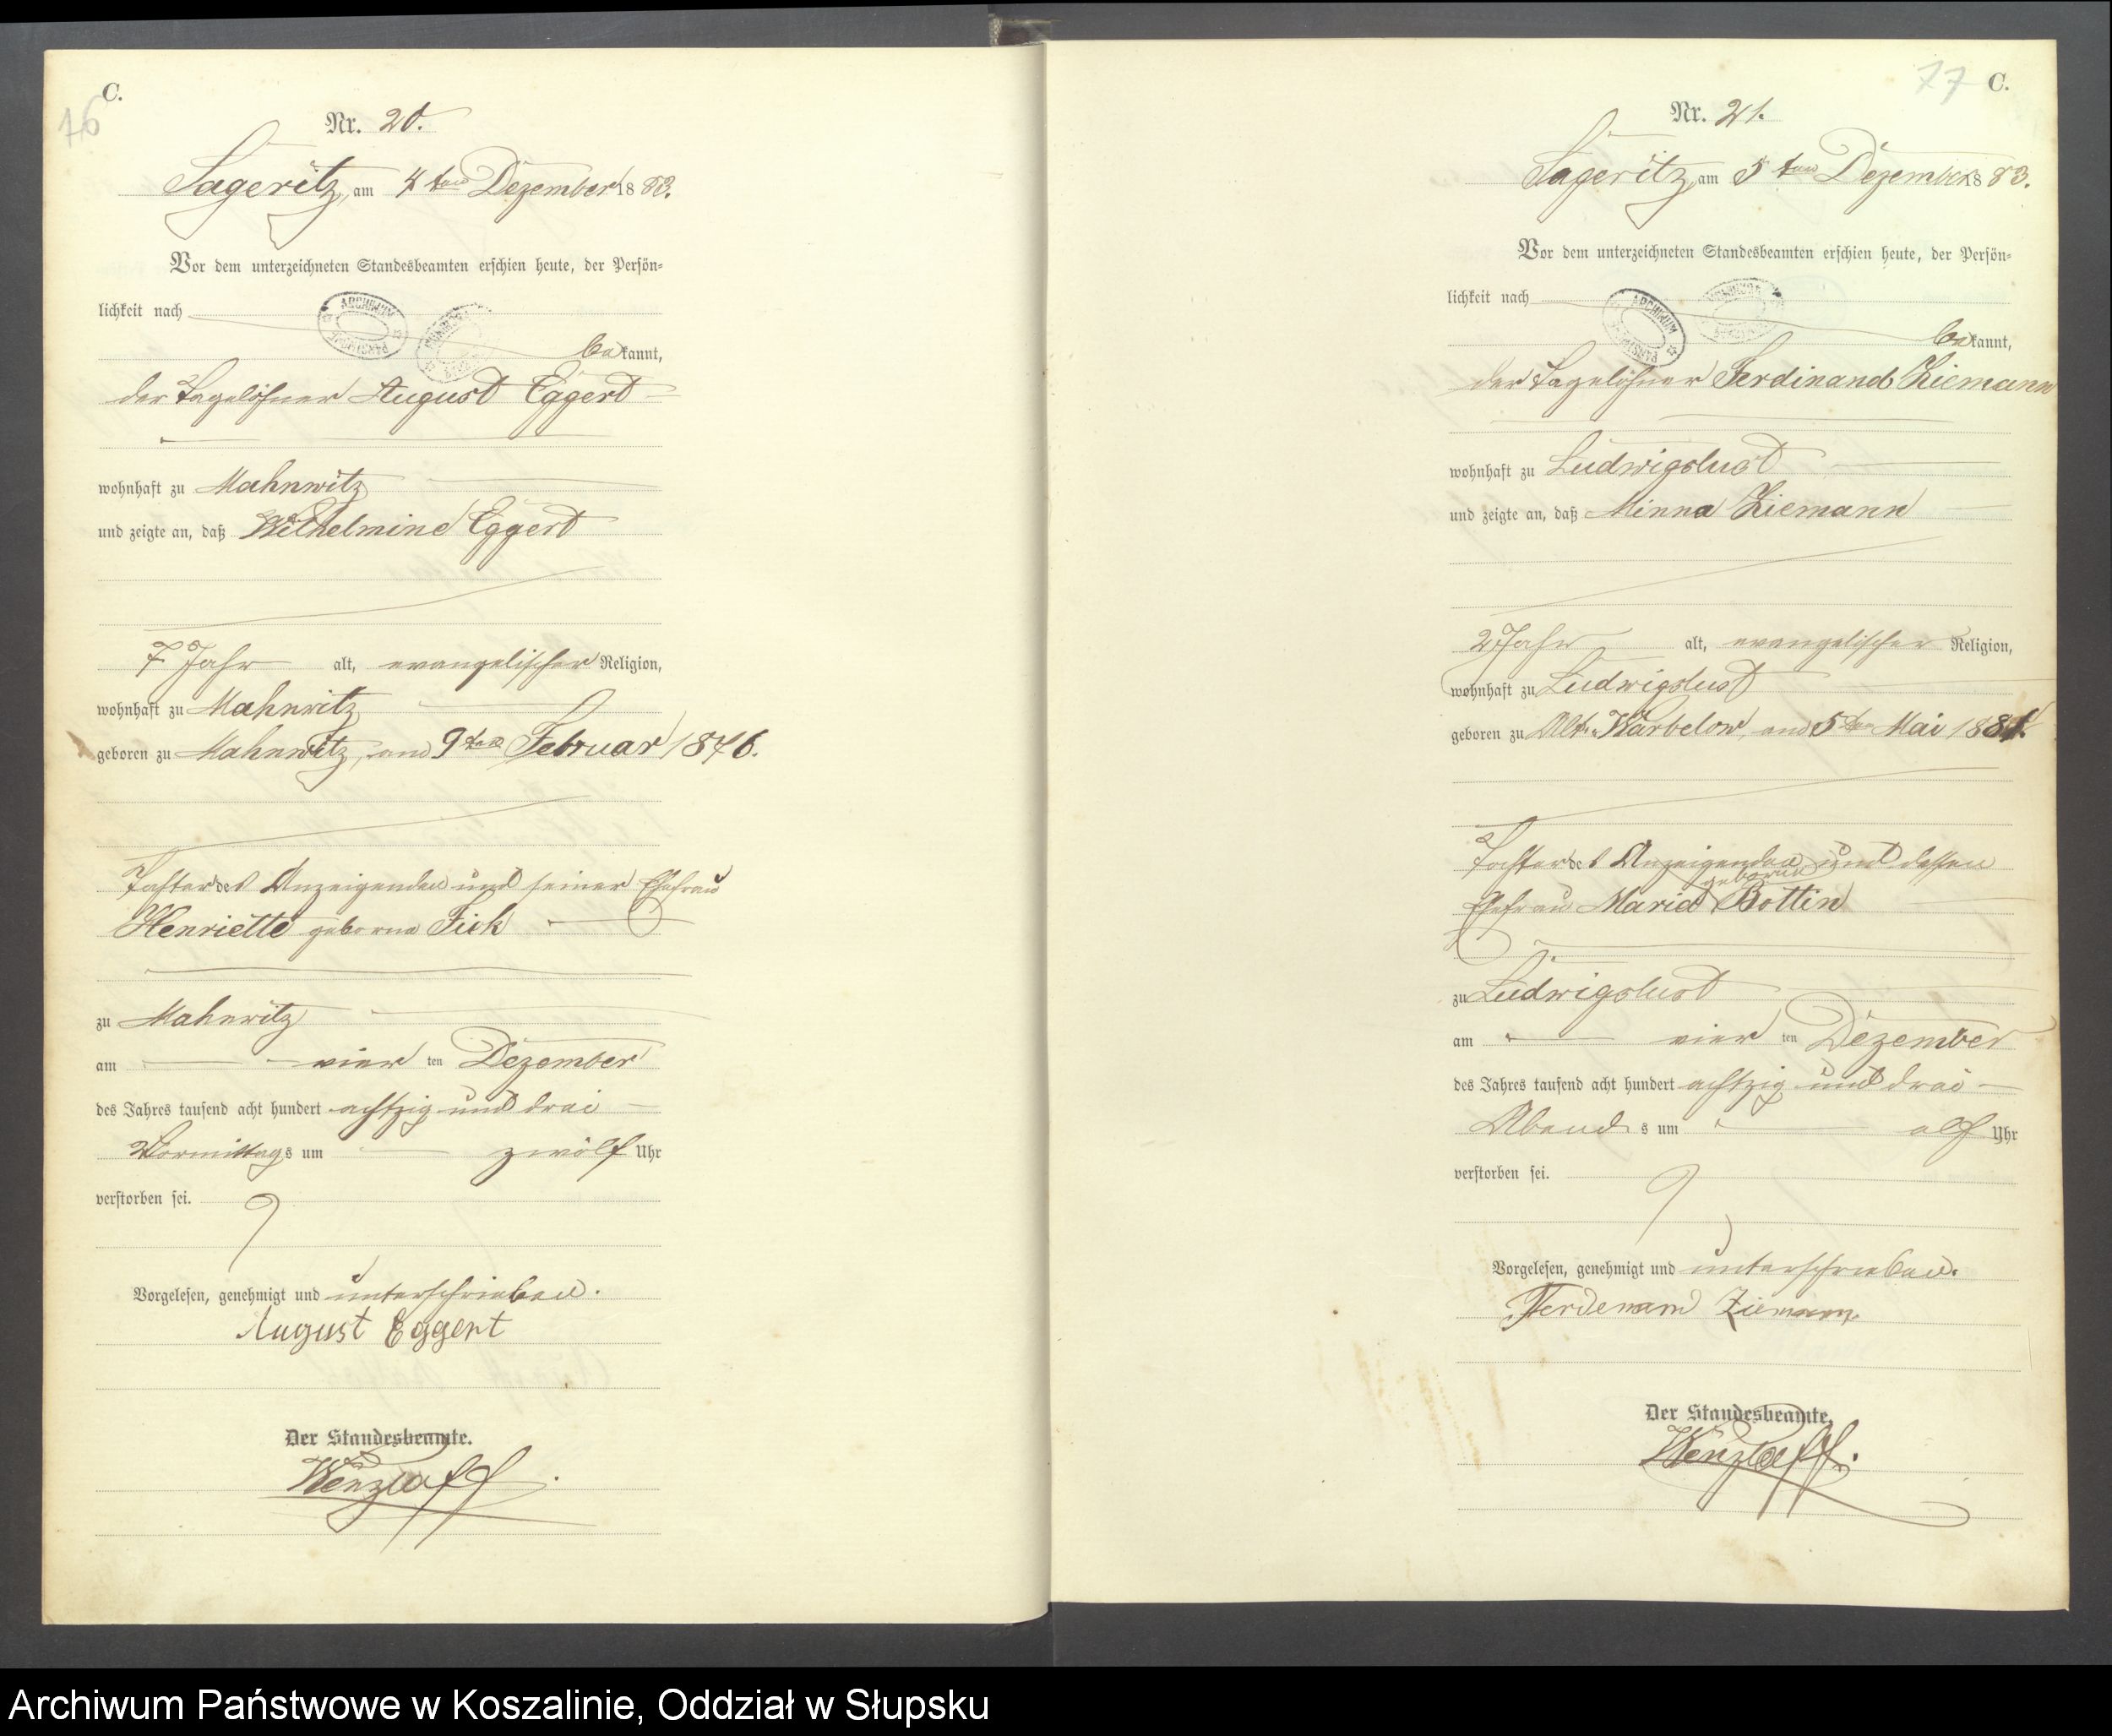 C.
76
Nr. 20.
Sageritz, am 4ten Dezember 1883.
Vor dem unterzeichneten Standesbeamten erschien heute, der Persön-
lichkeit nach
bekannt,
der Tagelöhner August Eggert
wohnhaft zu Mahnwitz
und zeigte an, daß Wilhelmine Eggert
7 Jahr alt, evangelischer Religion,
wohnhaft zu Mahnwitz
geboren zu Mahnwitz, am 9ten Februar 1876.
Tochter des Anzeigenden und seiner Ehefrau
Henriette geborne Fick
zu Mahnwitz
am vier ten Dezember
des Jahres tausend acht hundert achtzig und drei
Vormittags um zwölf Uhr
verstorben sei.
Vorgelesen, genehmigt und unterschrieben.
August Eggert
Der Standesbeamte.
Wenzlaff.
77 C.
Nr. 21.
Sageritz, am 5ten Dezember 1883.
Vor dem unterzeichneten Standesbeamten erschien heute, der Persön-
lichkeit nach
bekannt,
der Tagelöhner Ferdinand Ziemann
wohnhaft zu Ludwigslust
und zeigte an, daß Minna Ziemann
2 Jahr alt, evangelischer Religion,
wohnhaft zu Ludwigslust
geboren zu Alt-Warbelow, am 5ten Mai 1881.
Tochter des Anzeigenden und dessen
Ehefrau Maria geborne Bottin
zu Ludwigslust
am vier ten Dezember
des Jahres tausend acht hundert achtzig und drei
Abends um elf Uhr
verstorben sei.
Vorgelesen, genehmigt und unterschrieben.
Ferdenand Ziemann
Der Standesbeamte.
Wenzlaff.
Archiwum Państwowe w Koszalinie, Oddział w Słupsku